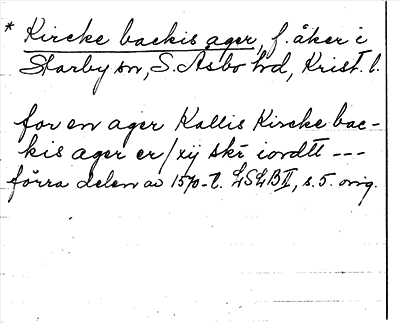 * Kircke backis ager, f. åker i
Starby sn, S. Åsbo hd, Krist. l.
for en ager Kallis Kircke bac-
kis ager er / xij skr iordtt ---
förra delen av 1570-t. LSLB II, s. 5. orig.